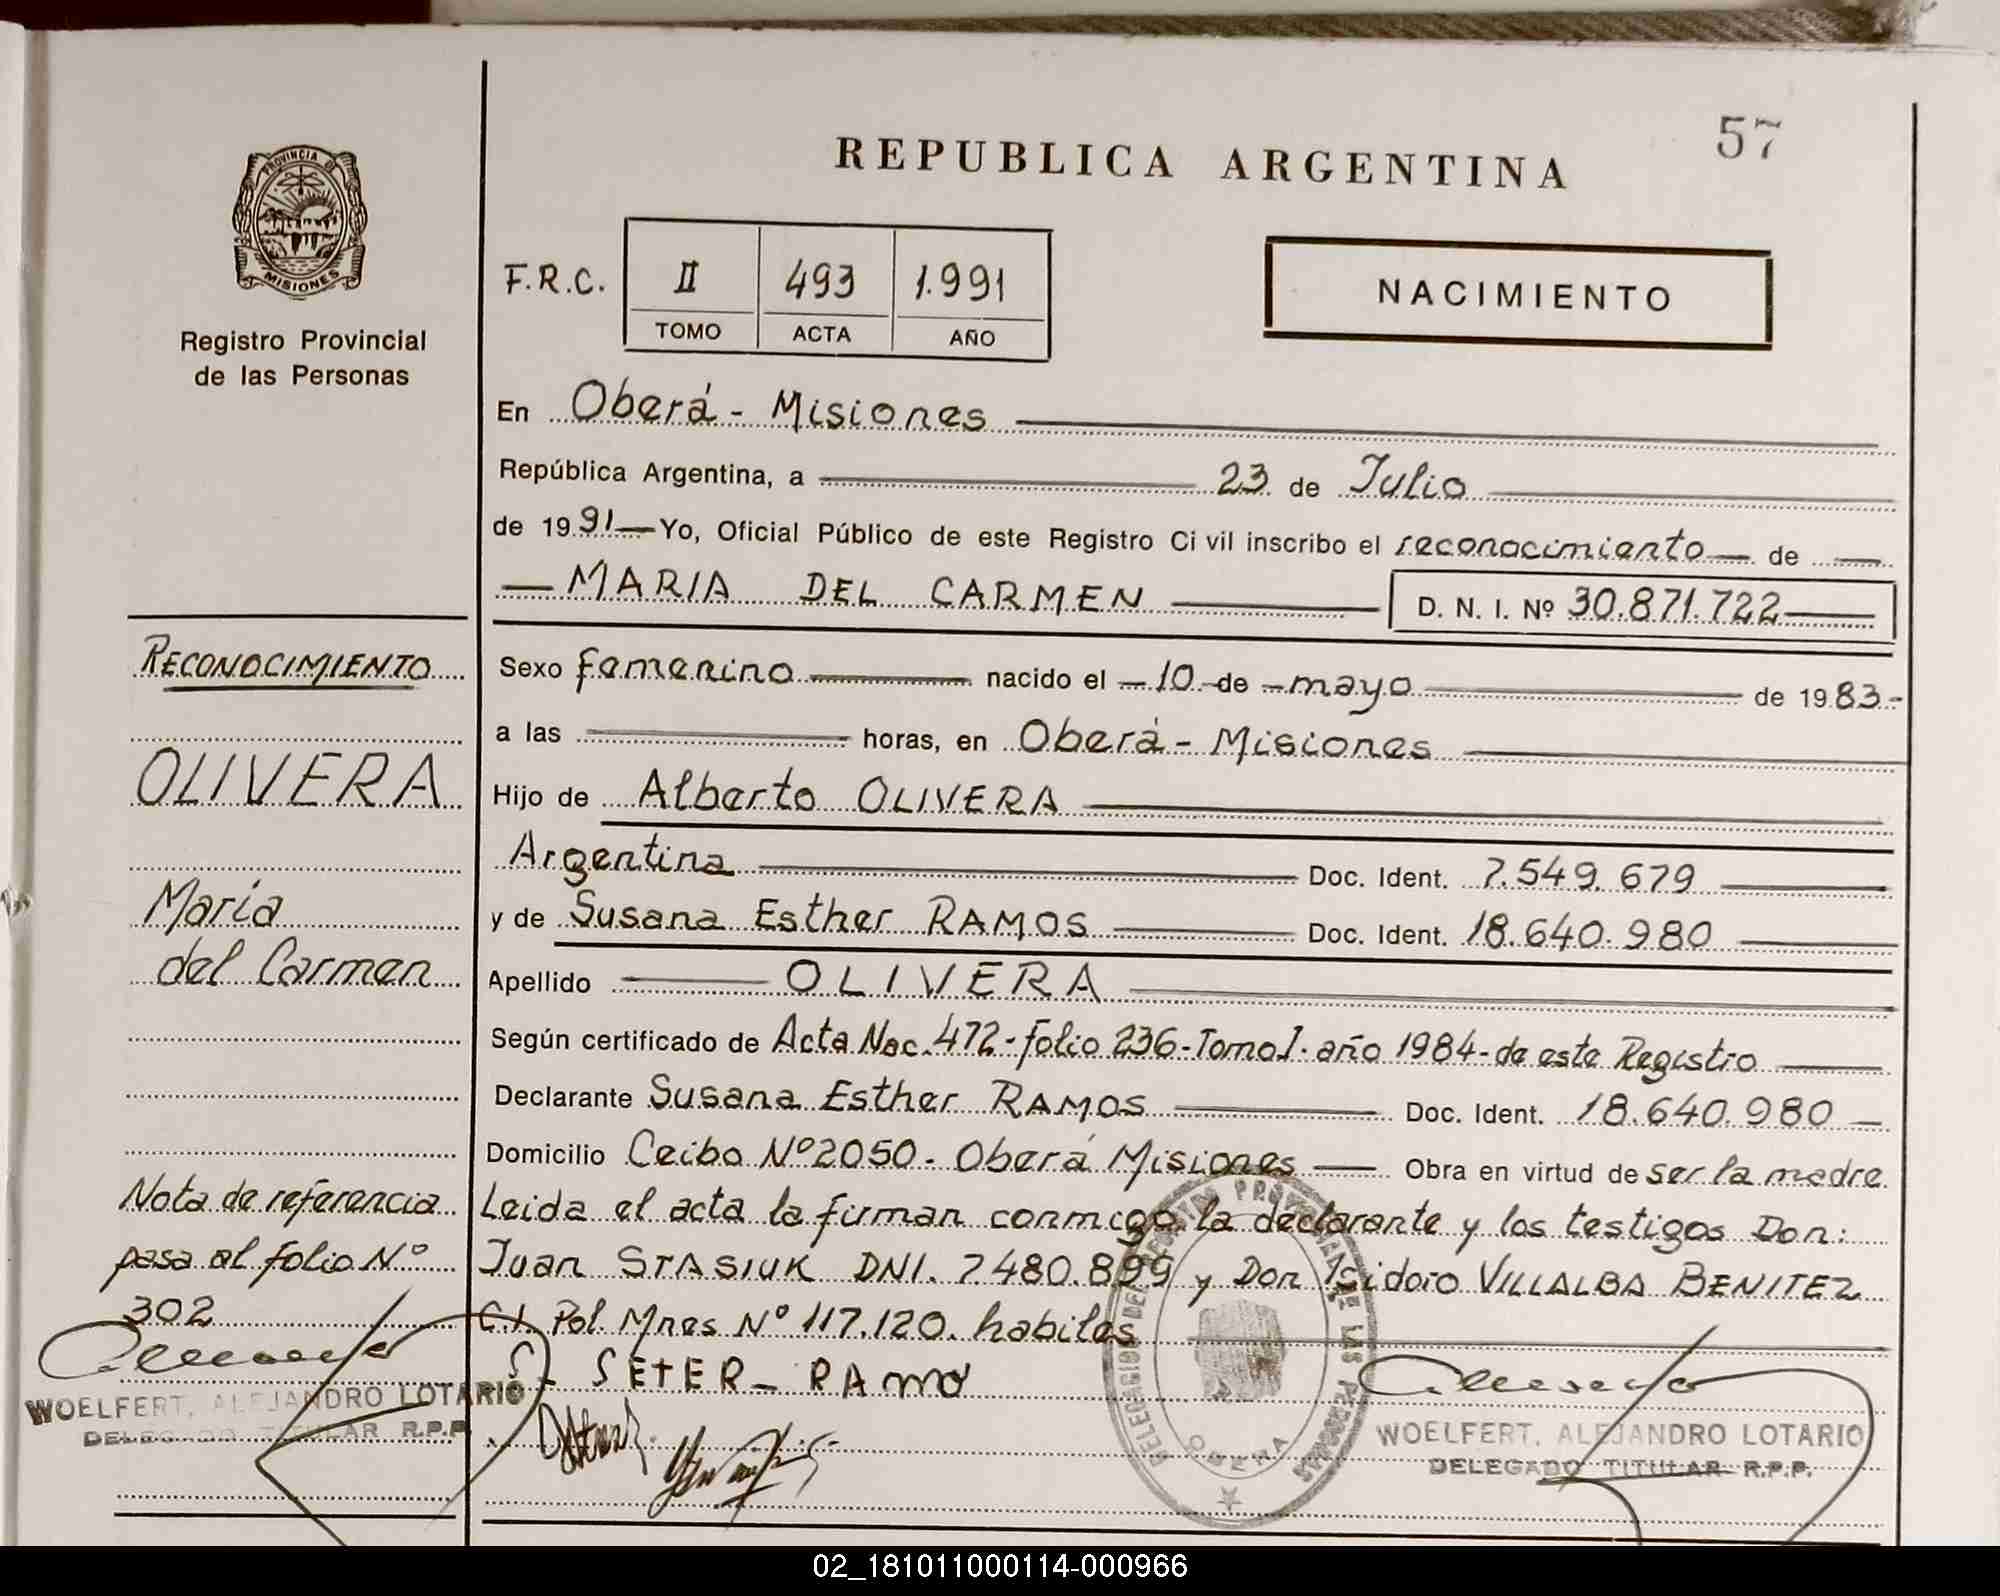 57
REPUBLICA ARGENTINA
PROVINCIA DE
MISIONES
Registro Provincial
de las Personas
F.R.C. II 493 1.991
TOMO ACTA AÑO
NACIMIENTO
En Oberá - Misiones
República Argentina, a 23 de Julio
de 1991 Yo, Oficial Público de este Registro Civil inscribo el reconocimiento de
MARIA DEL CARMEN D. N. I. Nº 30.871.722
Sexo femenino nacido el 10 de mayo de 1983-
a las horas, en Oberá - Misiones
Hijo de Alberto OLIVERA
Argentina Doc. Ident. 7.549.679
y de Susana Esther RAMOS Doc. Ident. 18.640.980
Apellido OLIVERA
Según certificado de Acta Nac. 472-folio 236-Tomo I. año 1984-de este Registro
Declarante Susana Esther RAMOS Doc. Ident. 18.640.980
Domicilio Ceibo Nº 2050. Oberá Misiones Obra en virtud de ser la madre
Leida el acta la firman conmigo la declarante y los testigos Don:
Juan STASIUK DNI. 7480.899 y Don Isidoro VILLALBA BENITEZ
C.I. Pol. Mnes Nº 117.120. habiles
S. SETER - RAMO
WOELFERT, ALEJANDRO LOTARIO
DELEGADO TITULAR R.P.P.
DELEGACION DEL REGISTRO PROVINCIAL DE LAS PERSONAS
OBERA
RECONOCIMIENTO
OLIVERA
Maria
del Carmen
Nota de referencia
pasa al folio Nº
302
WOELFERT, ALEJANDRO LOTARIO
DELEGADO TITULAR R.P.P.
02_181011000114-000966